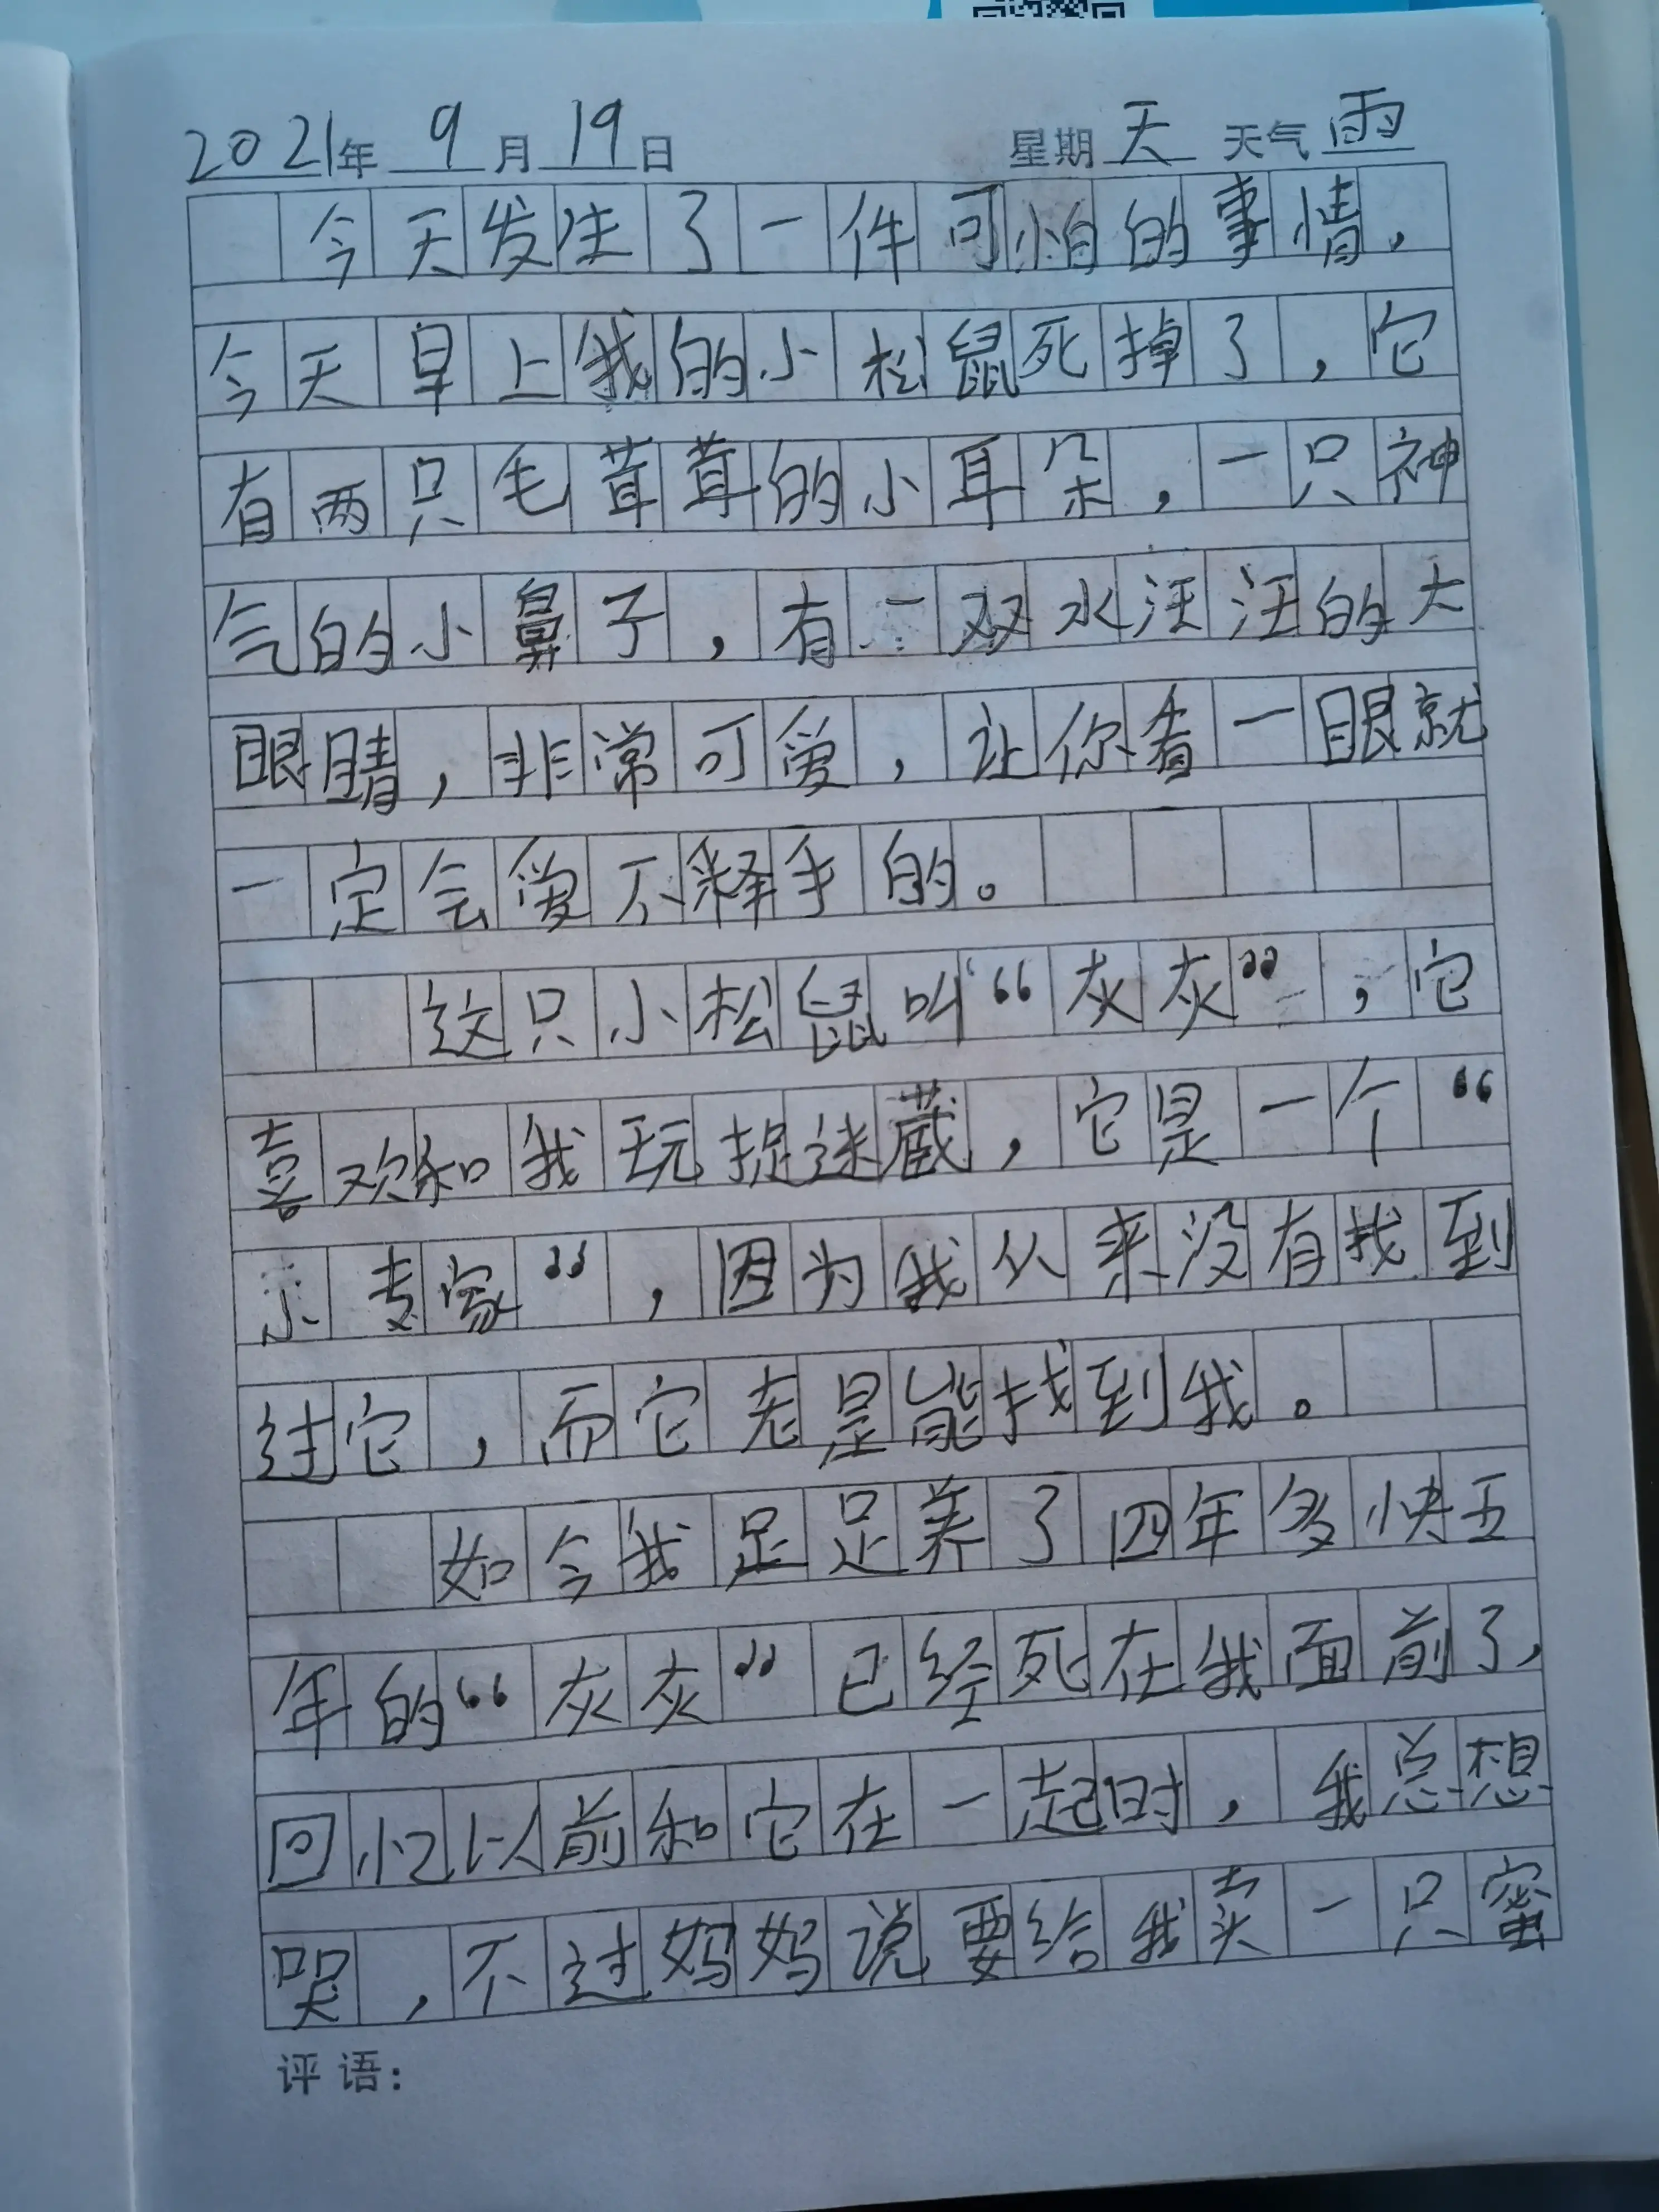 2021年 9月19日 星期天 天气雨
今天发生了一件可怕的事情，
今天早上我的小松鼠死掉了，它
有两只毛茸茸的小耳朵，一只神
气的小鼻子，有一双水汪汪的大
眼睛，非常可爱，让你看一眼就
一定会爱不释手的。
这只小松鼠叫“灰灰”，它
喜欢和我玩捉迷藏，它是一个“
小专家”，因为我从来没有找到
过它，而它老是能找到我。
如今我足足养了四年多快五
年的“灰灰”已经死在我面前了，
回忆以前和它在一起时，我总想
哭，不过妈妈说要给我卖一只蜜
评语：